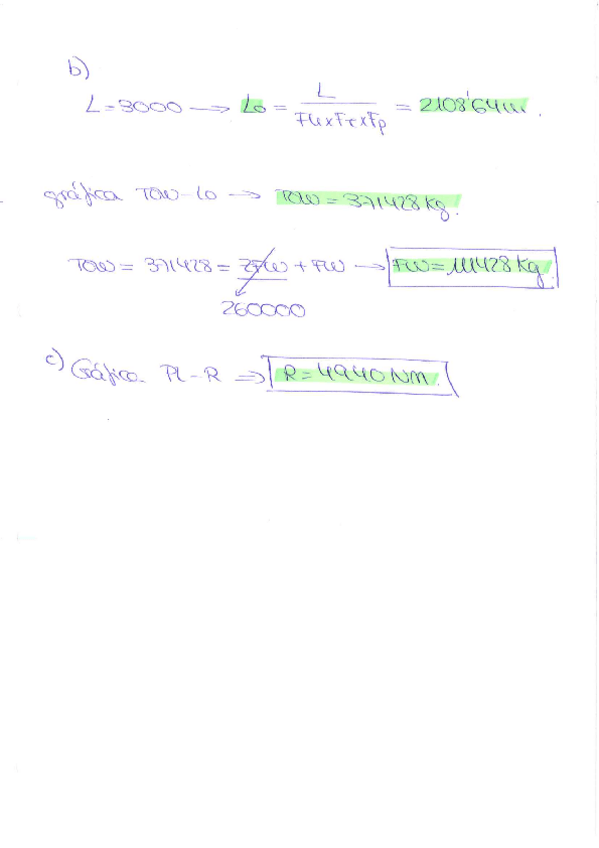 b)
L = 3000 → Lo = L / FH x FT x Fp = 2108'64 m.
gráfica TOW-LO → TOW = 371428 Kg.
TOW = 371428 = ZFW + FW → FW = 111428 Kg
260000
c) Gráfica PL-R ⇒ R = 4940 NM.